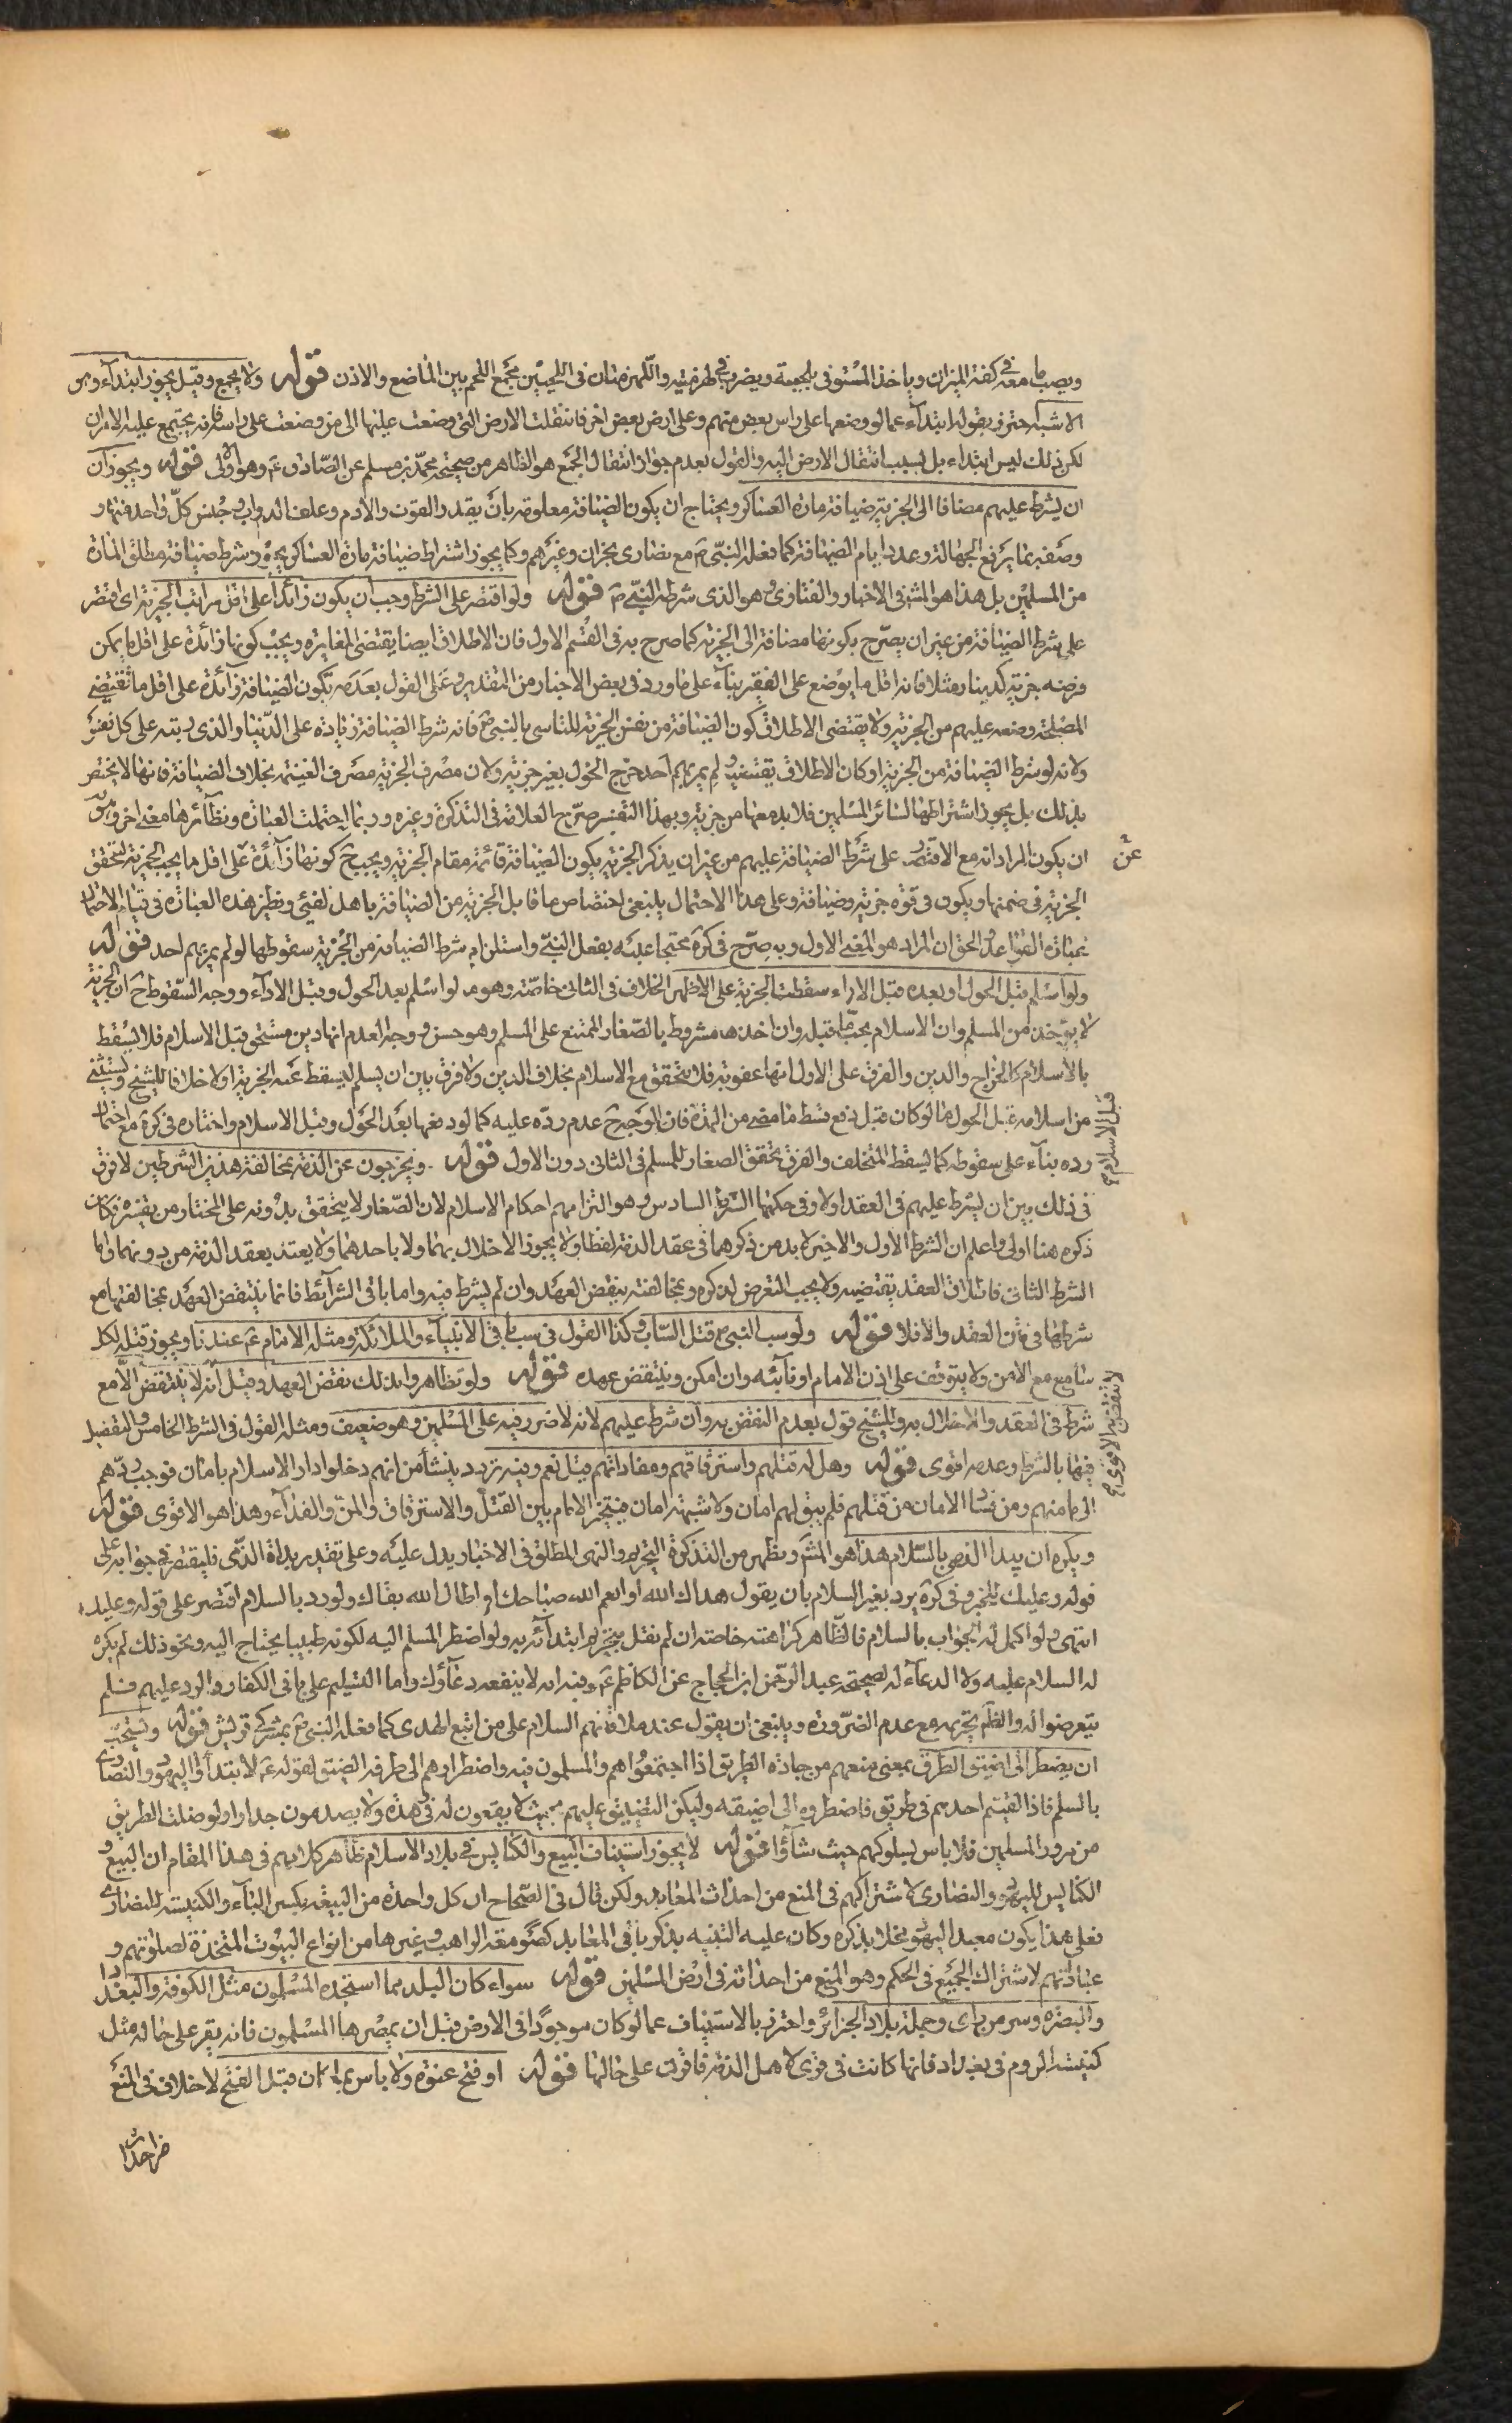 ويصب ما معه في كفة الميزان وياخذ المستوفى بلحيته ويضرب في لهزمتيه واللهزمتان في اللحيين مجمع اللحم بين الماضغ والاذن قوله ولا يجمع وقيل يجوز ابتداء وهو
الاشبه احترز بقوله ابتداء عما لو وضعها على راس بعض منهم وعلى ارض بعض اخر فانتقلت الارض التي وضعت عليها الى من وضعت على راسه فانه يجتمع عليه الامران
لكن ذلك ليس ابتداء بل بسبب انتقال الارض اليه والقول بعدم جواز انتقال الجمع هو الظاهر من صحيحة محمد بن مسلم عن الصادق ع وهو اولى قوله ويجوز ان
ان يشرط عليهم مضافا الى الجزية ضيافة مارة العساكر ويحتاج ان يكون الضيافة معلومة بان يقدر القوت والادم وعلف الدواب وجنس كل واحد منها و
وصفه بما يرفع الجهالة وعدد ايام الضيافة كما فعله النبي ص مع نصارى نجران وغيرهم وكما يجوز اشتراط ضيافة مارة العساكر يجوز شرط ضيافة مطلق المارة
من المسلمين بل هذا هو المش في الاخبار والفتاوى وهو الذي شرطه النبي ص قوله ولو اقتصر على الشرط وجب ان يكون زائدا على اقل مراتب الجزية اي اقتصر
على شرط الضيافة من غير ان يصرح بكونها مضافة الى الجزية كما صرح به في القسم الاول فان الاطلاق ايضا يقتضى المغايرة ويجب كونها زائدة على اقل ما يمكن
فرضه جزية كدينار مثلا فانه اقل ما يوضع على الفقير بناء على ما ورد في بعض الاخبار من التقدير وعلى القول بعدمه تكون الضيافة زائدة على اقل ما تقتضي
المصلحة وضعه عليهم من الجزية ولا يقتضى الاطلاق كون الضيافة من نفس الجزية للتاسي بالنبي ص فانه شرط الضيافة زيادة على الدنيا والذي رتبه على كل نفس
ولانه لو شرط الضيافة من الجزية او كان الاطلاق يقتضيه لم يمر بهم احد خرج الحول بغير جزية ولان مصرف الجزية مصرف الغنيمة بخلاف الضيافة فانها لا يختص
بذلك بل يجوز اشتراطها لسائر المسلمين فلا بد معها من جزية وبهذا التفسير صرح العلامة في التذكرة وغيره وربما احتملت العبارة ونظائرها معنى اخر وهو
ان يكون المراد انه مع الاقتصار على شرط الضيافة عليهم من غير ان يذكر الجزية يكون الضيافة قائمة مقام الجزية ويجب ح كونها زائدة على اقل ما يجب الجزية لتحقق
الجزية في ضمنها ويكون في قوة جزية وضيافة وعلى هذا الاحتمال ينبغى اختصاص ما قابل الجزية من الضيافة باهل الفئ ونظير هذه العبارة في تيار الاحتمال
عبارة القواعد والحق ان المراد هو المعنى الاول وبه صرح في كره محتجا عليه بفعل النبي واستلزام شرط الضيافة من الجزية سقوطها لو لم يمر بهم احد قوله
ولو اسلم قبل الحول او بعده قبل الاداء سقطت الجزية على الاظهر الخلاف في الثاني خاصة وهو ما لو اسلم بعد الحول وقبل الاداء ووجه السقوط ح ان الجزية
لا يؤخذ من المسلم وان الاسلام يجب ما قبله وان اخذها مشروط بالصغار الممتنع على المسلم وهو حسن ووجه العدم انها دين مستحق قبل الاسلام فلا يسقط
بالاسلام كالخراج والدين والفرق على الاول انها عقوبة فلا يتحقق مع الاسلام بخلاف الدين ولا فرق بين ان يسلم ليسقط عنه الجزية اولا خلافا للشيخ ويستثنى
من اسلامه قبل الحول ما لو كان قبل دفع قسط ما مضى من المدة فان الوجه ح عدم رده عليه كما لو دفعها بعد الحول وقبل الاسلام واختاره في كره مع احتمال
رده بناء على سقوطه كما يسقط المتخلف والفرق تحقق الصغار للمسلم في الثاني دون الاول قوله ويخرجون عن الذمة بمخالفة هذين الشرطين لا فرق
في ذلك بين ان يشرط عليهم في العقد اولا وفي حكمها الشرط السادس وهو التزامهم احكام الاسلام لان الصغار لا يتحقق بدونه على المختار من تفسيره فكان
ذكره هنا اولى واعلم ان الشرط الاول والاخير لا بد من ذكرهما في عقد الذمة لفظا ولا يجوز الاخلال بهما ولا باحدهما ولا يعتد بعقد الذمة من دونهما واما
الشرط الثاني فاطلاق العقد يقتضيه ولا يجب التعرض لذكره وبمخالفته ينقض العهد وان لم يشرط فيه واما باقي الشرائط فانما ينتقض العهد بمخالفتها مع
شرطها في متن العقد والا فلا قوله ولو سب النبي ص قتل الساب وكذا القول في سب باقي الانبياء والملائكة ومثله الامام ع عندنا ويجوز قتله لكل
سامع مع الامن ولا يتوقف على اذن الامام او نائبه وان امكن وينتقض عهده قوله ولو تظاهروا بذلك نقض العهد وقيل انه لا ينتقض الا مع
شرط في العقد والاخلال به وللشيخ قول بعدم النقض به وان شرط عليهم لانه لا ضرر فيه على المسلمين وهو ضعيف ومثله القول في الشرط الخامس والتفصيل
فيها بالشرط وعدمه اقوى قوله وهل له قتلهم واسترقاقهم ومفاداتهم قيل نعم وفيه تردد ينشأ من انهم دخلوا دار الاسلام بامان فوجب ردهم
الى مامنهم ومن فساد الامان من قبلهم فلم يبق لهم امان ولا شبهة امان فيتخير الامام بين القتل والاسترقاق والمن والفداء وهذا هو الاقوى قوله
ويكره ان يبدا الذمي بالسلام هذا هو المش ويظهر من التذكرة التحريم والنهى المطلق في الاخبار يدل عليه وعلى تقدير بداة الذمي فليقتصر في جوابه على
قوله وعليك للخبر وفي كره يرد بغير السلام بان يقول هداك الله او انعم الله صباحك او اطال الله بقاك ولو رد بالسلام اقتصر على قوله وعليك
انتهى ولو اكمل له الجواب بالسلام فالظاهر كراهته خاصة ان لم نقل بتحريم ابتدائه به ولو اضطر المسلم اليه لكونه طبيبا يحتاج اليه ونحو ذلك لم يكره
له السلام عليه ولا الدعاء له لصحيحة عبد الرحمن ابن الحجاج عن الكاظم ع وفيه انه لا ينفعه دعاؤك واما التسليم على باقي الكفار والرد عليهم فلم
يتعرضوا له والظ تحريمه مع عدم الضرورة وينبغى ان يقول عند ملاقاتهم السلام على من اتبع الهدى كما فعله النبي ص بمشركي قريش قوله ويستحب
ان يضطر الى اضيق الطرق بمعنى منعهم من جادة الطريق اذا اجتمعوا هم والمسلمون فيه واضطرارهم الى طرفه الضيق لقوله ع لا تبتدأوا اليهود والنصارى
بالسلم فاذا لقيتم احدهم في طريق فاضطروه الى اضيقه وليكن التضييق عليهم بحيث لا يقعون له في وهدة ولا يصدمون جدارا ولو خلت الطريق
من مرور المسلمين فلا باس بسلوكهم حيث شاؤا قوله لا يجوز استيناف البيع والكنايس في بلاد الاسلام ظاهر كلامهم في هذا المقام ان البيع و
الكنايس لليهود والنصارى لاشتراكهم في المنع من احداث المعابد ولكن قال في الصحاح ان كل واحدة من البيعة بكسر الباء والكنيسة للنصارى
فعلى هذا يكون معبد اليهود مخلا بذكره وكان عليه التنبيه بذكر باقي المعابد كصومعة الراهب وغيرها من انواع البيوت المتخذة لصلوتهم و
عباداتهم لاشتراك الجميع في الحكم وهو المنع من احداثه في ارض المسلمين قوله سواء كان البلد مما استجده المسلمون مثل الكوفة والبغداد
والبصرة وسر من راى وجملة بلاد الجزائر واحترز بالاستيناف عما لو كان موجودا في الارض قبل ان يمصرها المسلمون فانه يقر على حاله مثل
كنيسة الروم في بغداد فانها كانت في قرى لاهل الذمة فاقرت على حالها قوله او فتح عنوة ولا باس بما كان قبل الفتح لا خلاف في المنع
عن
قبل الاسلام
لا ينتقض به الاقوى
من احداث